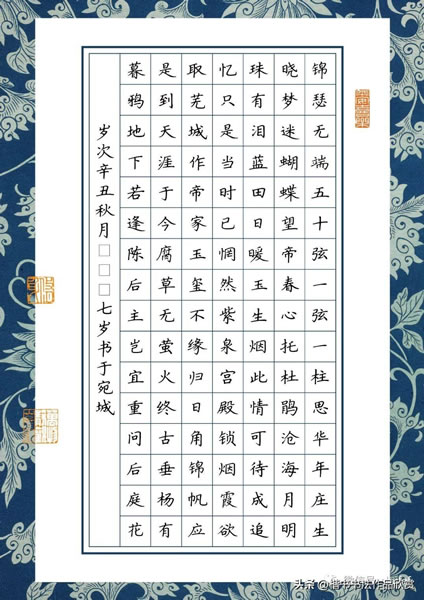 锦瑟无端五十弦一弦一柱思华年庄生
晓梦迷蝴蝶望帝春心托杜鹃沧海月明
珠有泪蓝田日暖玉生烟此情可待成追
忆只是当时已惘然紫泉宫殿锁烟霞欲
取芜城作帝家玉玺不缘归日角锦帆应
是到天涯于今腐草无萤火终古垂杨有
暮鸦地下若逢陈后主岂宜重问后庭花
岁次辛丑秋月□□□七岁书于宛城
头条 @楷书书法作品欣赏